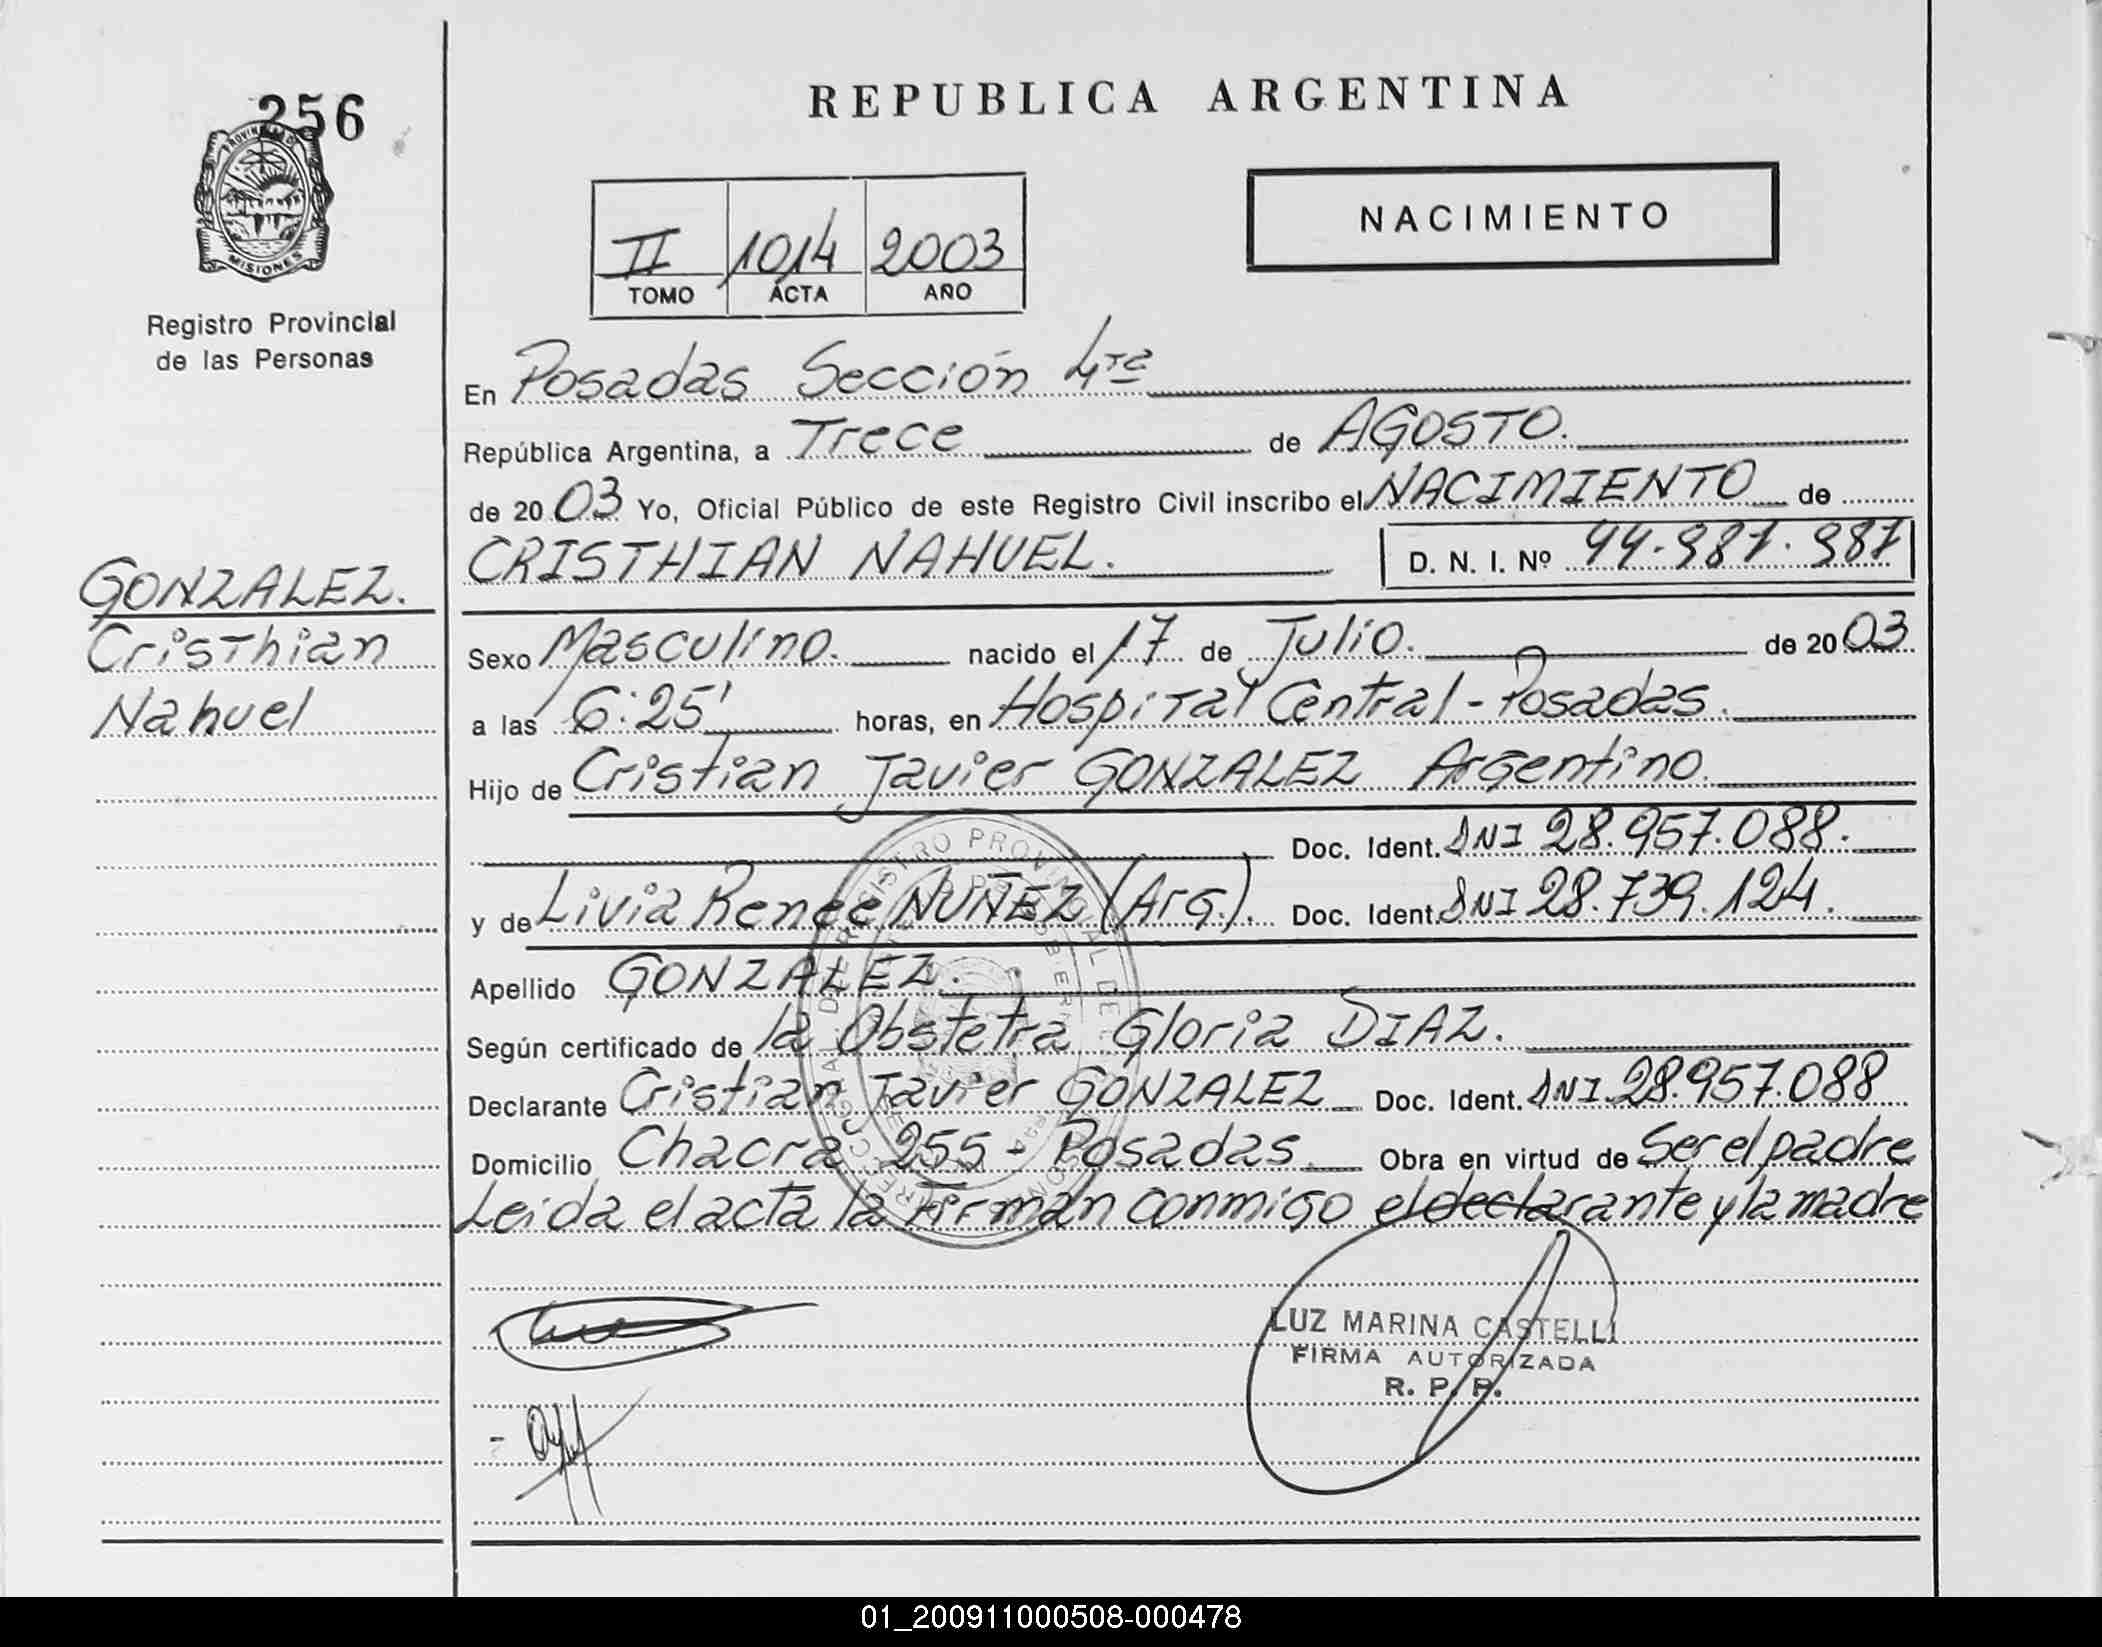 256
PROVINCIA DE
MISIONES
Registro Provincial
de las Personas
GONZALEZ.
Cristhian
Nahuel
REPUBLICA ARGENTINA
NACIMIENTO
II 1014 2003
TOMO ACTA AÑO
En Posadas Sección 4ta
República Argentina, a Trece de AGOSTO.
de 2003 Yo, Oficial Público de este Registro Civil inscribo el NACIMIENTO de
CRISTHIAN NAHUEL. D. N. I. Nº 44.987.987
Sexo Masculino. nacido el 17 de Julio. de 2003
a las 6:25' horas, en Hospital Central - Posadas.
Hijo de Cristian Javier GONZALEZ Argentino.
Doc. Ident. DNI 28.957.088.
y de Livia Renee NUÑEZ (Arg.). Doc. Ident. DNI 28.739.124.
Apellido GONZALEZ.
Según certificado de la Obstetra Gloria DIAZ.
Declarante Cristian Javier GONZALEZ Doc. Ident. DNI. 28.957.088
Domicilio Chacra 255 - Posadas. Obra en virtud de Ser el padre
Leida el acta la Firman conmigo el declarante y la madre
LUZ MARINA CASTELLI
FIRMA AUTORIZADA
R. P. P.
REGISTRO PROVINCIAL DE
01_200911000508-000478